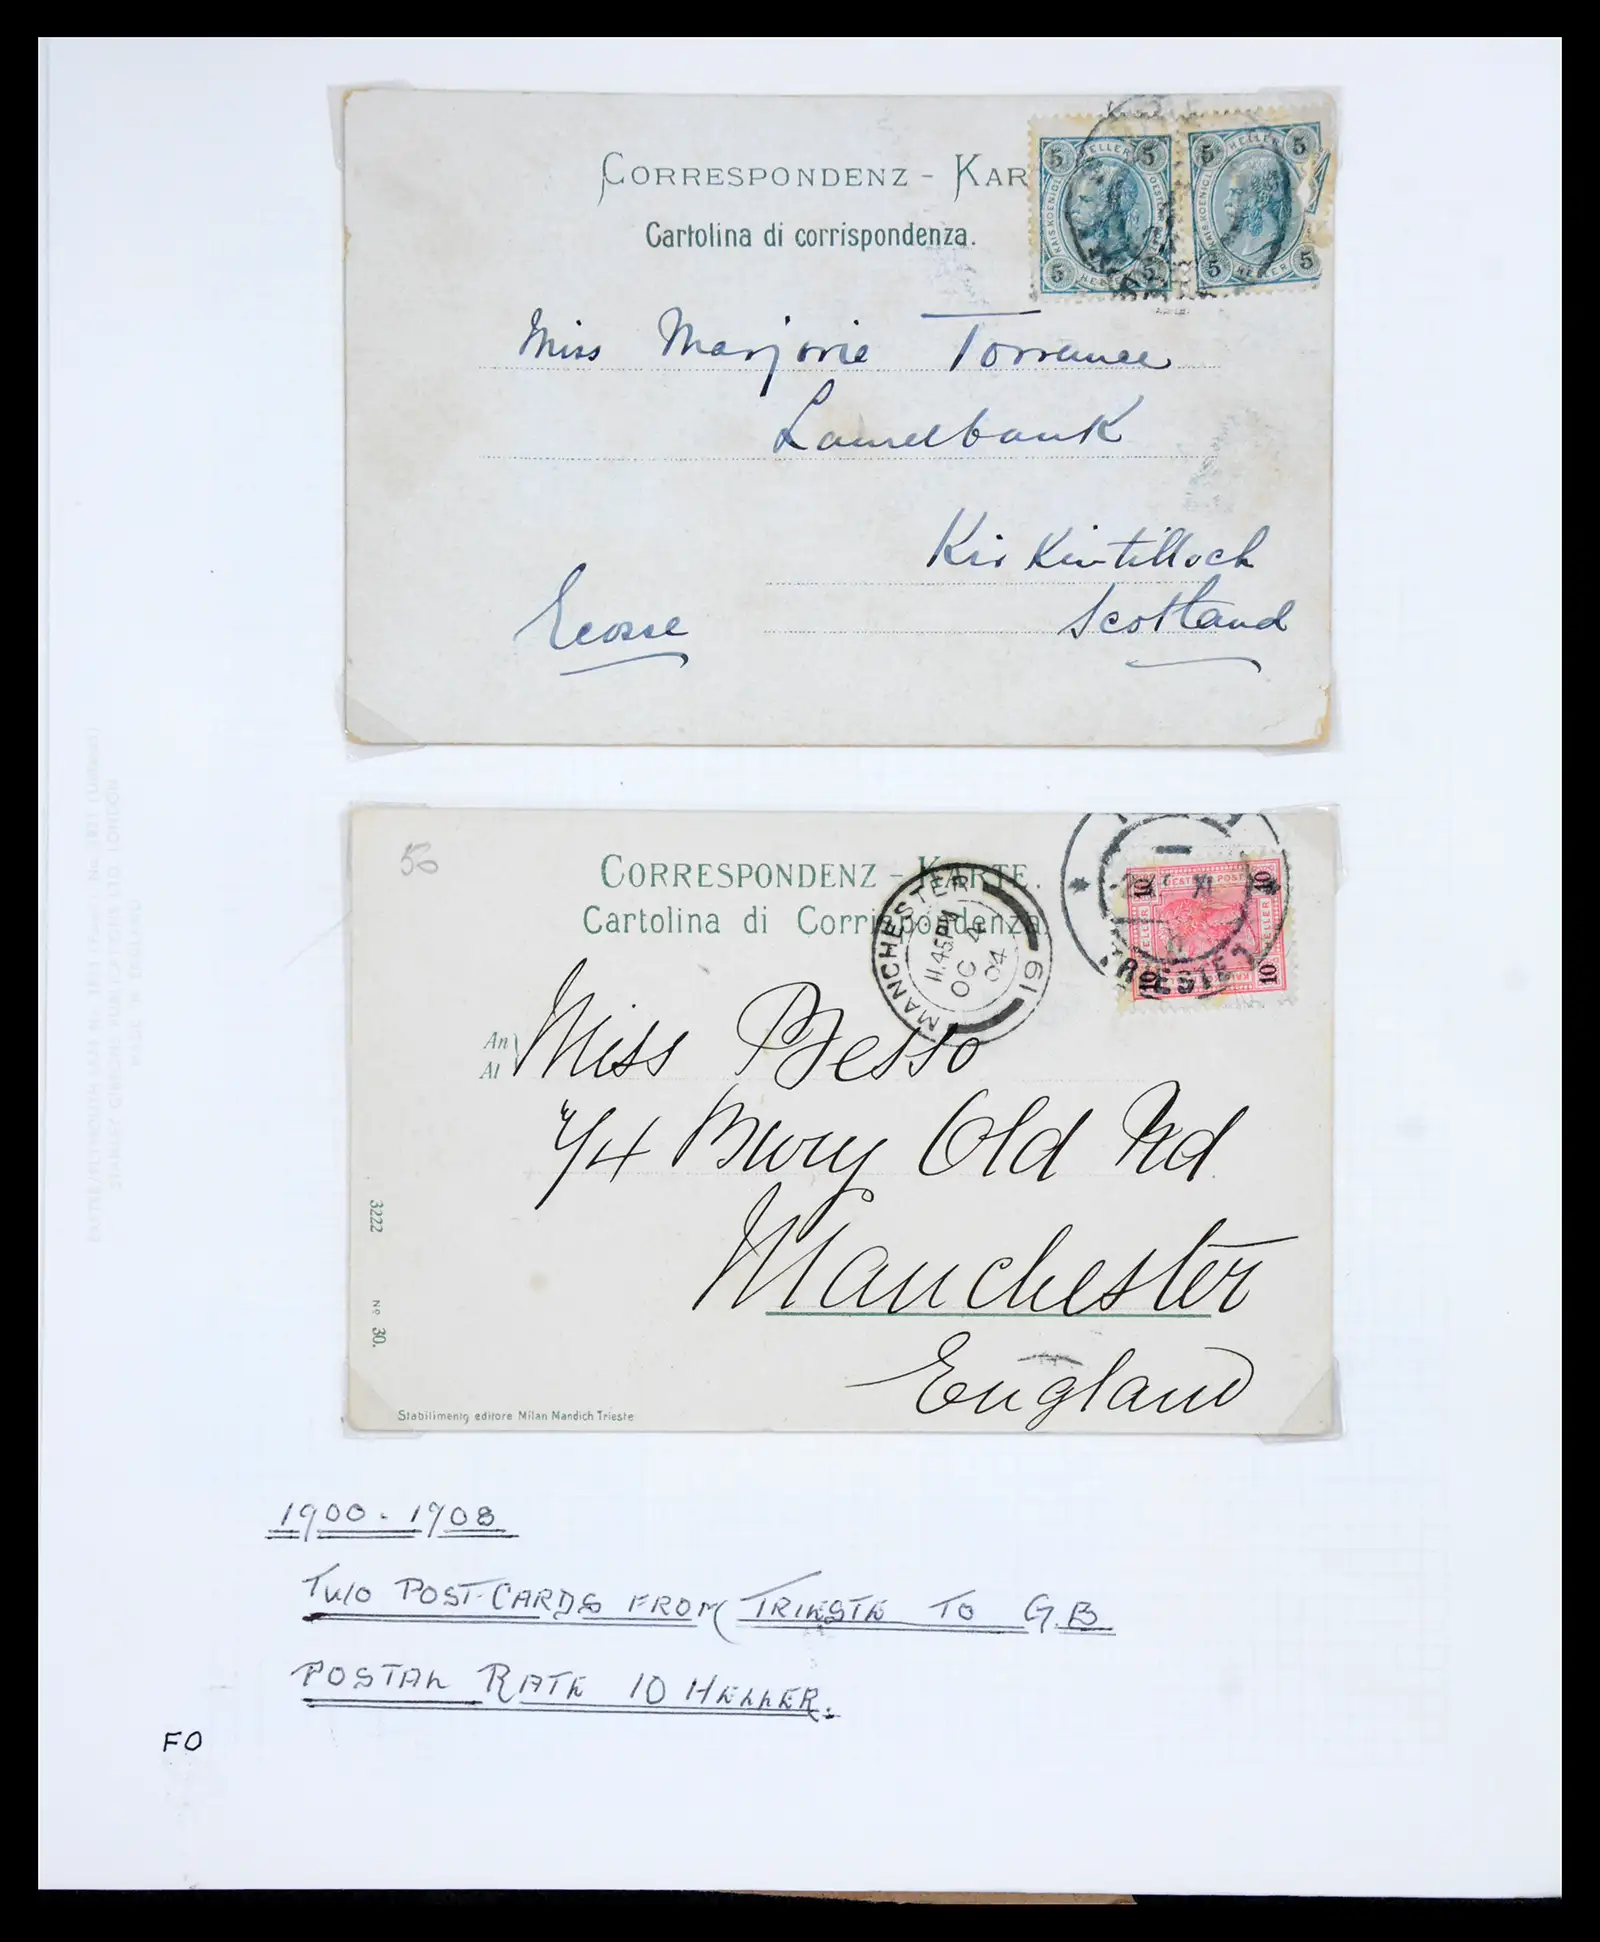 CORRESPONDENZ - KAR
Cartolina di corrispondenza.
5 HELLER 5
5 HELLER 5
5 HELLER 5
5 HELLER 5
Miss Marjorie Torrance
Laurelbank
Kirkintilloch
Scotland
Ecosse
50
CORRESPONDENZ - KARTE.
Cartolina di Corrispondenza.
MANCHESTER
11.45PM
OC 4
04
61
TRIESTE
10 10
10 10
An
Al
Miss Besso
Bury Old Rd.
Manchester
England
3222
No 30.
Stabilimento editore Milan Mandich Trieste
1900 - 1908
TWO POST-CARDS FROM TRIESTE TO G.B
POSTAL RATE 10 HELLER.
FO